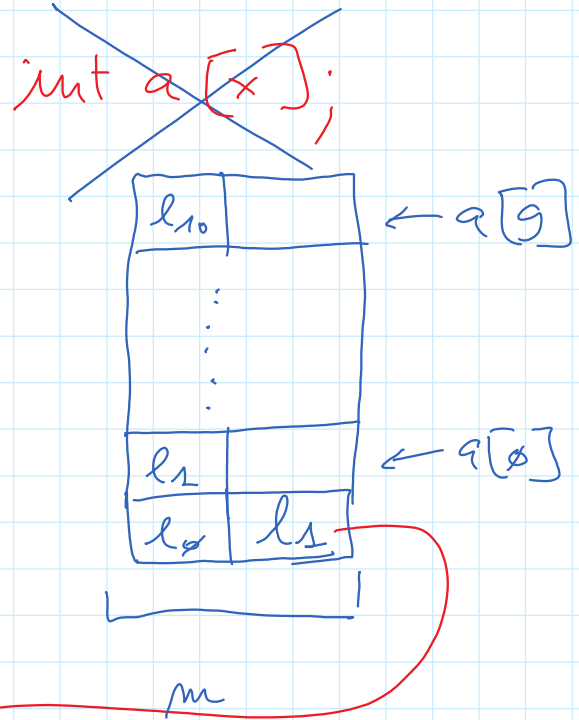 int a[x];
l10 ← a[9]
l1 ← a[ø]
lø l1
m